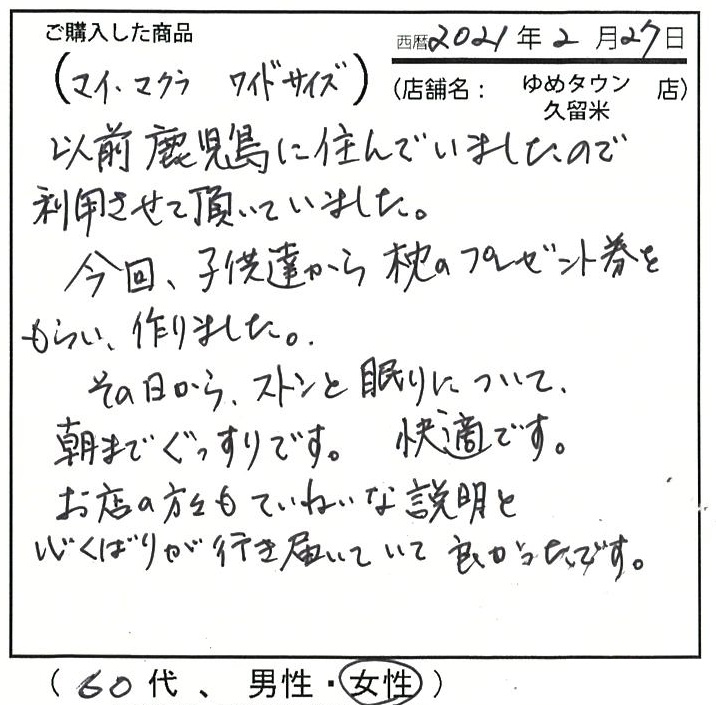 ご購入した商品
西暦2021年2月27日
(マイ、マクラ ワイドサイズ)
(店舗名： ゆめタウン 久留米 店)
以前鹿児島に住んでいましたので
利用させて頂いていました。
今回、子供達から枕のプレゼント券を
もらい、作りました。
その日から、ストンと眠りについて、
朝までぐっすりです。 快適です。
お店の方々もていねいな説明と
心くばりが行き届いていて良かったです。
(60代、男性・女性)